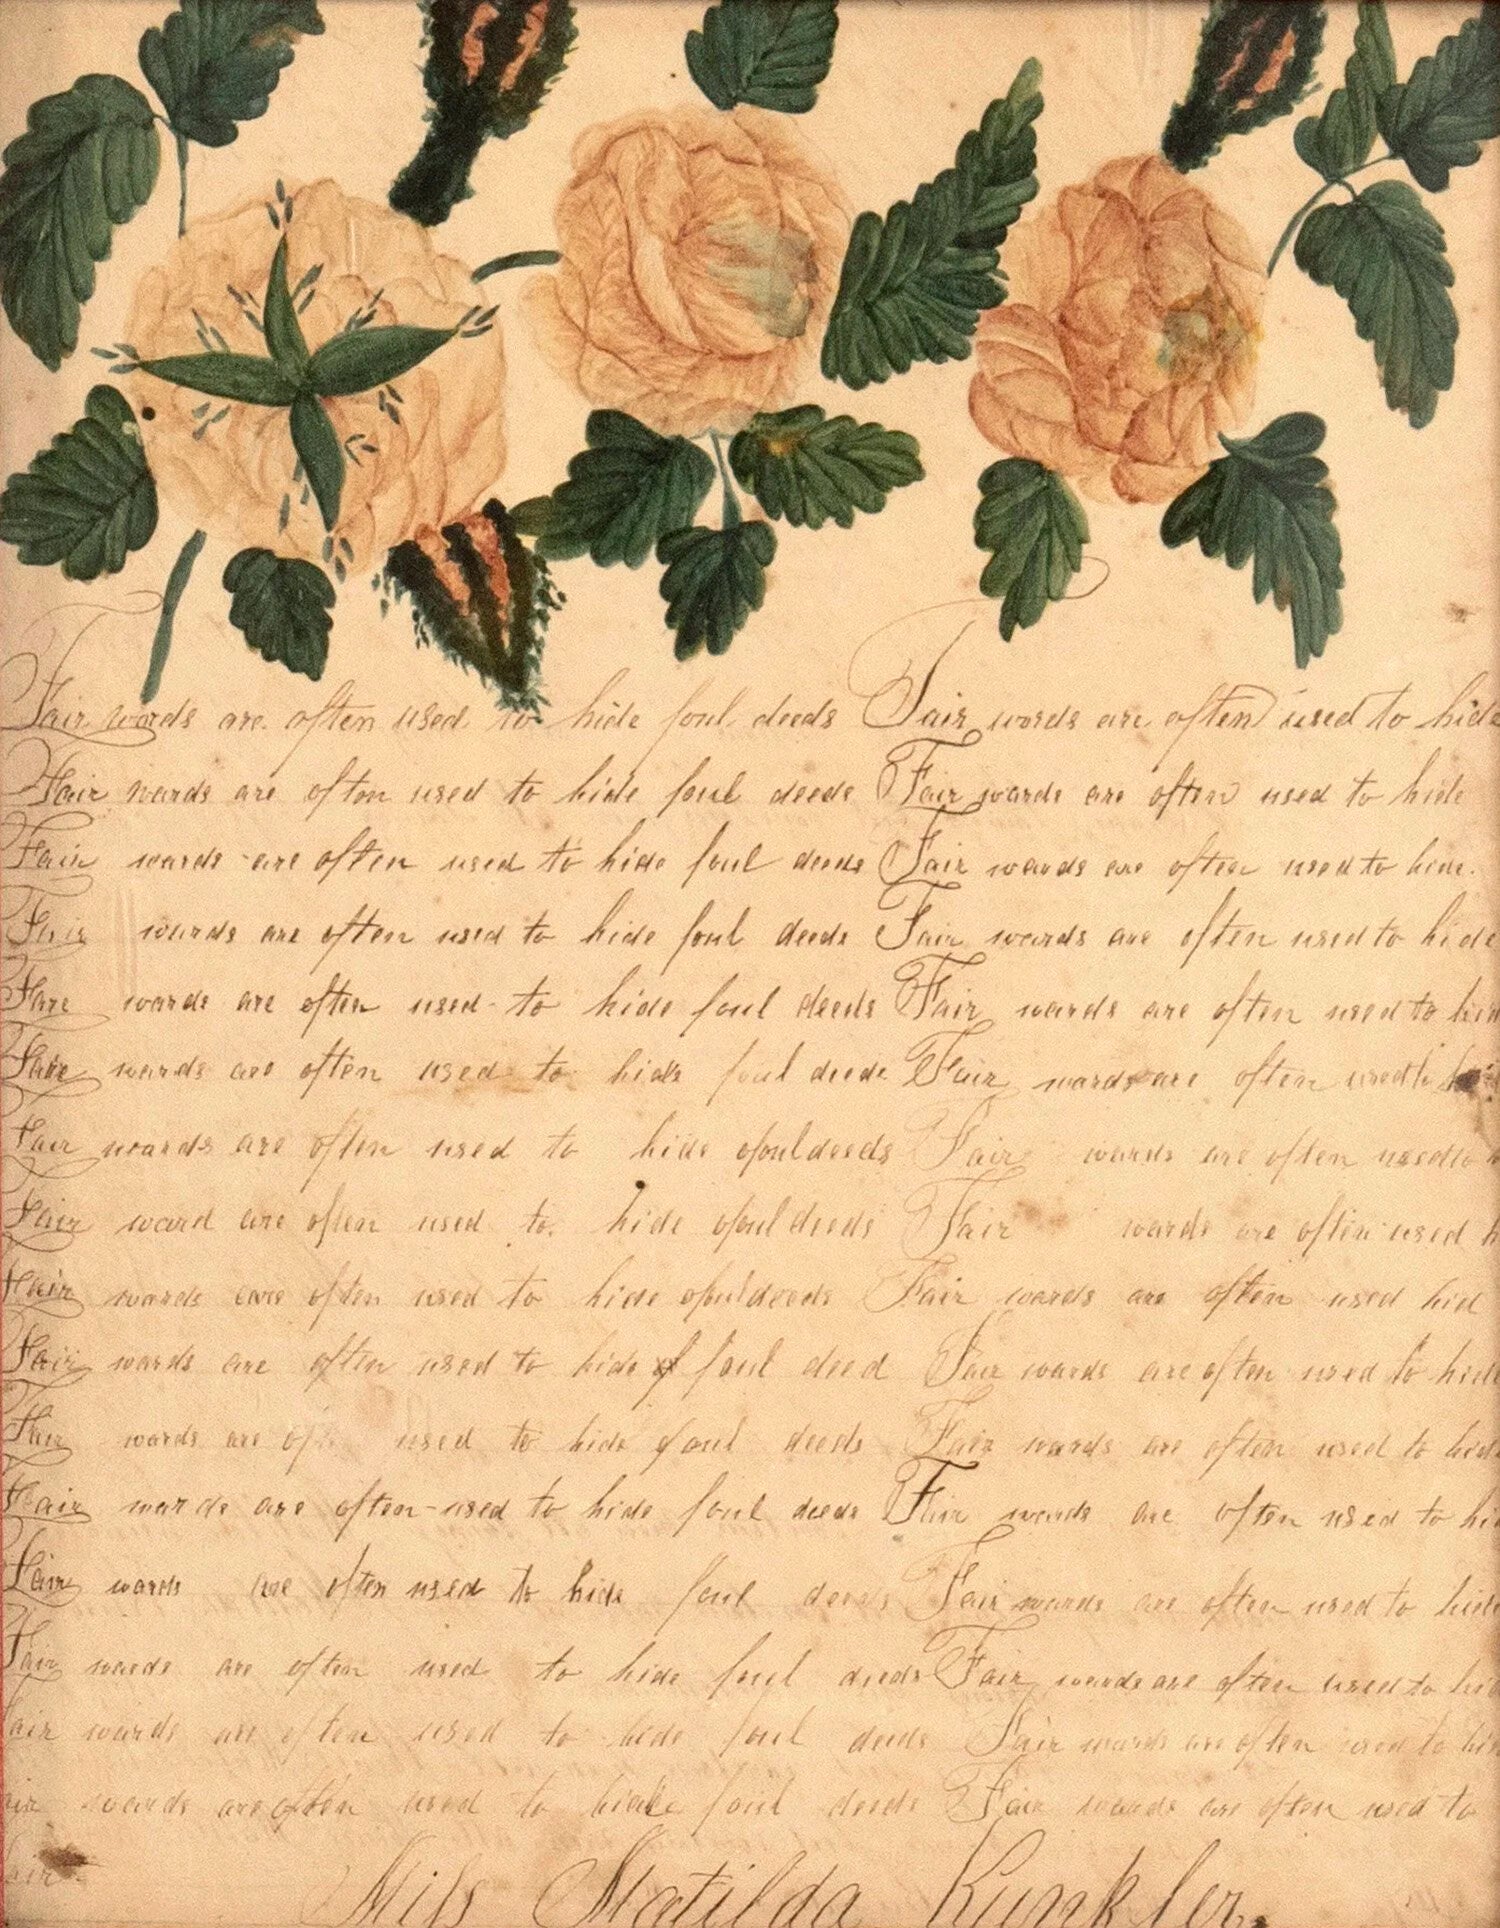 Fair words are often used to hide foul deeds Fair words are often used to hide
Fair wards are often used to hide foul deeds Fair wards are often used to hide
Fair wards are often used to hide foul deeds Fair wards are often used to hide.
Fair wards are often used to hide foul deeds Fair wards are often used to hide
Fare wards are often used to hide foul deeds Fair wards are often used to
Fair wards are often used to hide foul deeds Fair wards are often used to
Fair wards are often used to hide ofouldeeds Fair wards are often used to
Fair ward are often used to. hide ofoul deeds Fair wards are often used
Fair wards are often used to hide ofouldeeds Fair wards are often used hid
Fair wards are often used to hide of foul deed Fair wards are often used to hide
Fair wards are used to hide foul deeds Fair wards are often used to hide
Fair wards are often used to hide foul deeds Fair wards are often used to
Fair wards are often used to hide foul deeds Fair wards are often used to hide
Fair wards are often used to hide foul deeds Fair wards are often used to
air wards are often used to hide foul deeds Fair wards are often used to
air wards are often used to hide foul deeds Fair wards are often used to
air
Miſs Matilda Kunkler.